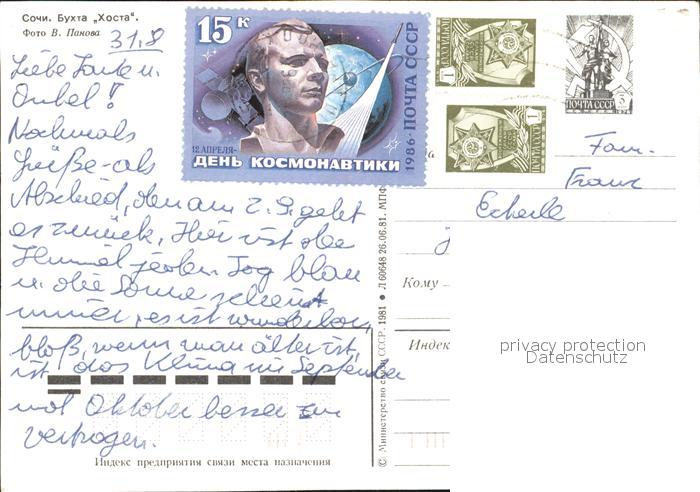 Сочи. Бухта „Хоста“.
Фото В. Панова
31.8
Liebe Tante u.
Onkel!
Nochmals
Grüße - als
Abschied, denn am 2.9. geht
es zurück. Hier ist der
Himmel jeden Tag blau
u. die Sonne scheint
immer, es ist wunderbar,
bloß, wenn man älter ist,
ist das Klima im September
und Oktober besser zu
vertragen.
Индекс предприятия связи места назначения
15 К
12 АПРЕЛЯ-
ДЕНЬ КОСМОНАВТИКИ
1986 · ПОЧТА СССР
ПОЧТА СССР
© Министерство связи СССР. 1981 ● Л 60648 26.06.81. МПФ
Fam.
Franz
Кому
Индек
privacy protection
Datenschutz